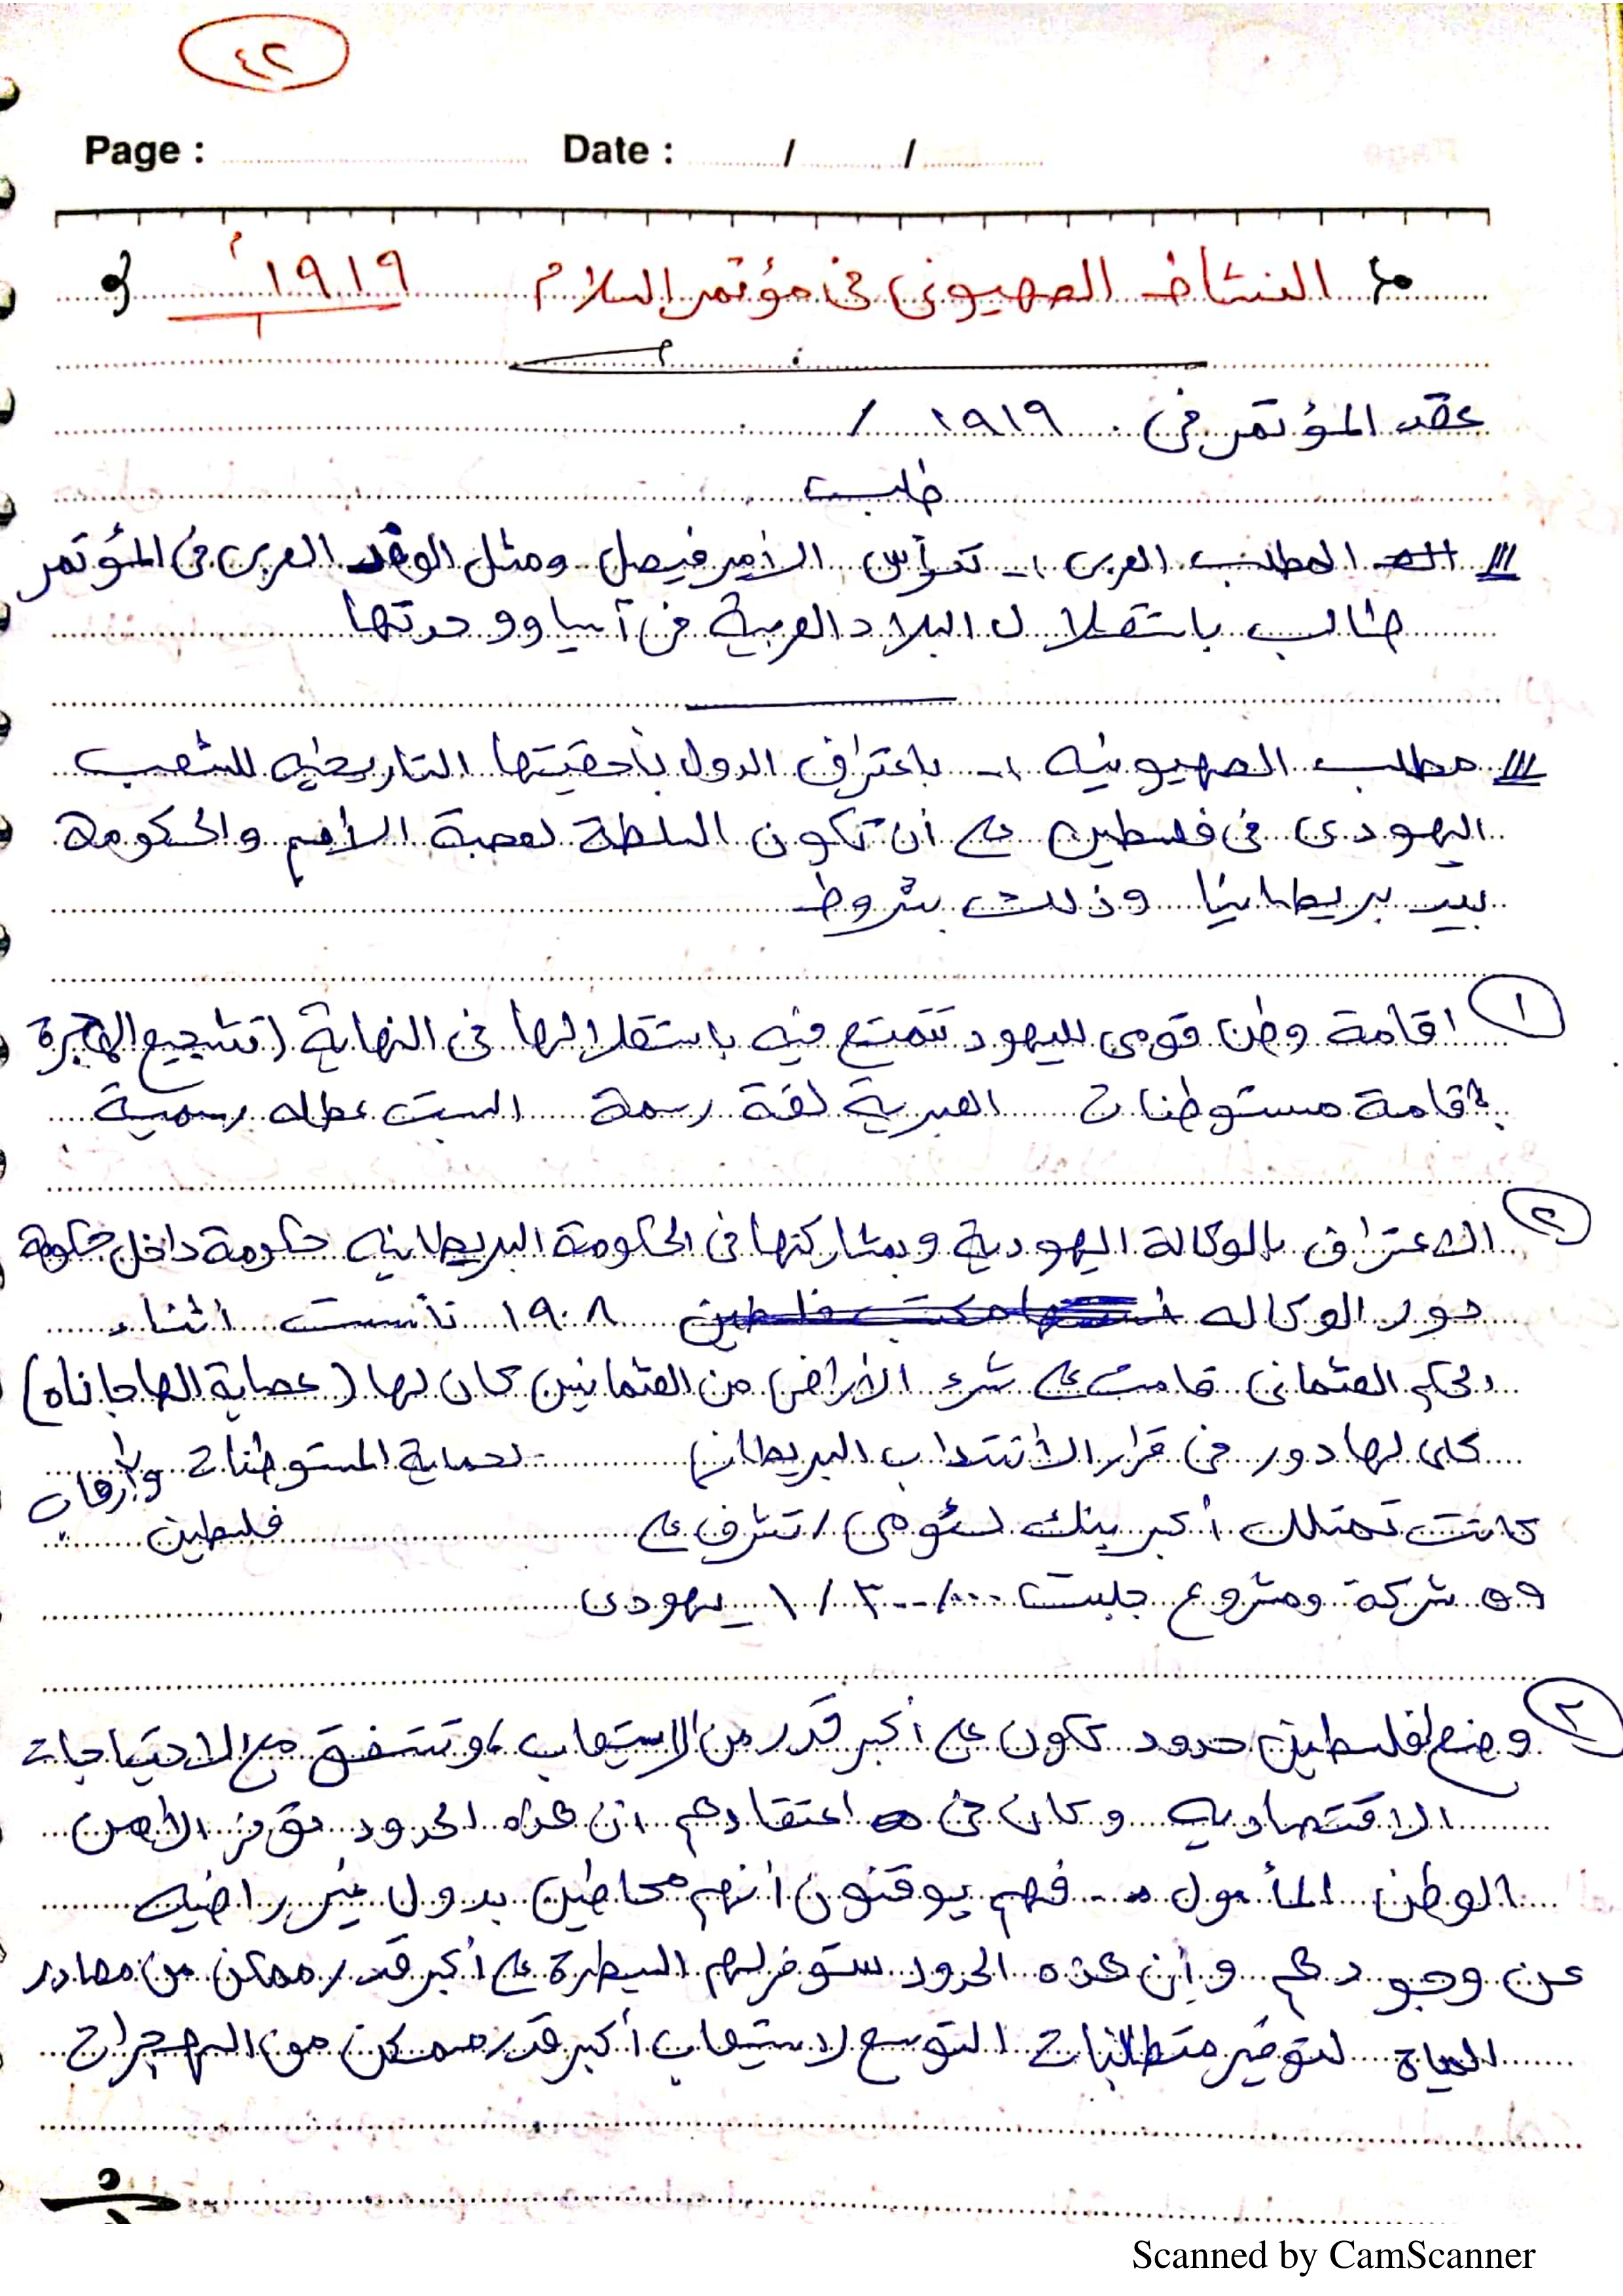 ٤٢
Page : Date : / /
النشاط الصهيونى فى مؤتمر السلام ١٩١٩م
عقد المؤتمر فى ١٩١٩ /
طلب
المطلب العربى :- ترأس الأمير فيصل ومثل الوفد العربى فى المؤتمر
طالب باستقلال البلاد العربية فى آسيا ووحدتها
مطلب الصهيونيه :- باعتراف الدول بأحقيتها التاريخيه للشعب
اليهودى فى فلسطين على أن تكون السلطة لعصبة الأمم والحكومة
بيد بريطانيا وذلك بشروط
١ اقامة وطن قومى لليهود تتمتع فيه باستقلالها فى النهاية (تشجيع الهجرة
إقامة مستوطنات العبرية لغة رسمة السبت عطله رسمية
٢ الاعتراف بالوكالة اليهودية وبمشاركتها فى الحكومة البريطانيه حكومة داخل حكومة
دور الوكاله ١٩٠٨ تأسست اثناء
الحكم العثمانى قامت على شرء الأراضى من العثمانين كان لها (عصابة الهاجاناه)
كان لها دور فى قرار الأنتداب البريطانى لحماية المستوطنات وإرهاب
كانت تمتلك أكبر بنك / تشرف على فلسطين
شركة ومشروع جلبت يهودى
٣ وضع لفلسطين حدود تكون على أكبر قدر من الاستيعاب ، وتتفق مع الاحتياجات
الاقتصاديه وكان فى اعتقادهم ان هذه الحدود توفر الأمن
الوطن المأمول فهم يوقنون أنهم محاطين بدول غير راضيه
عن وجودهم وأن هذه الحدود ستوفر لهم السيطرة على أكبر قدر ممكن من مصادر
المياه لتوفير متطلبات التوسع لاستيعاب أكبر قدر ممكن من الهجرات
Scanned by CamScanner